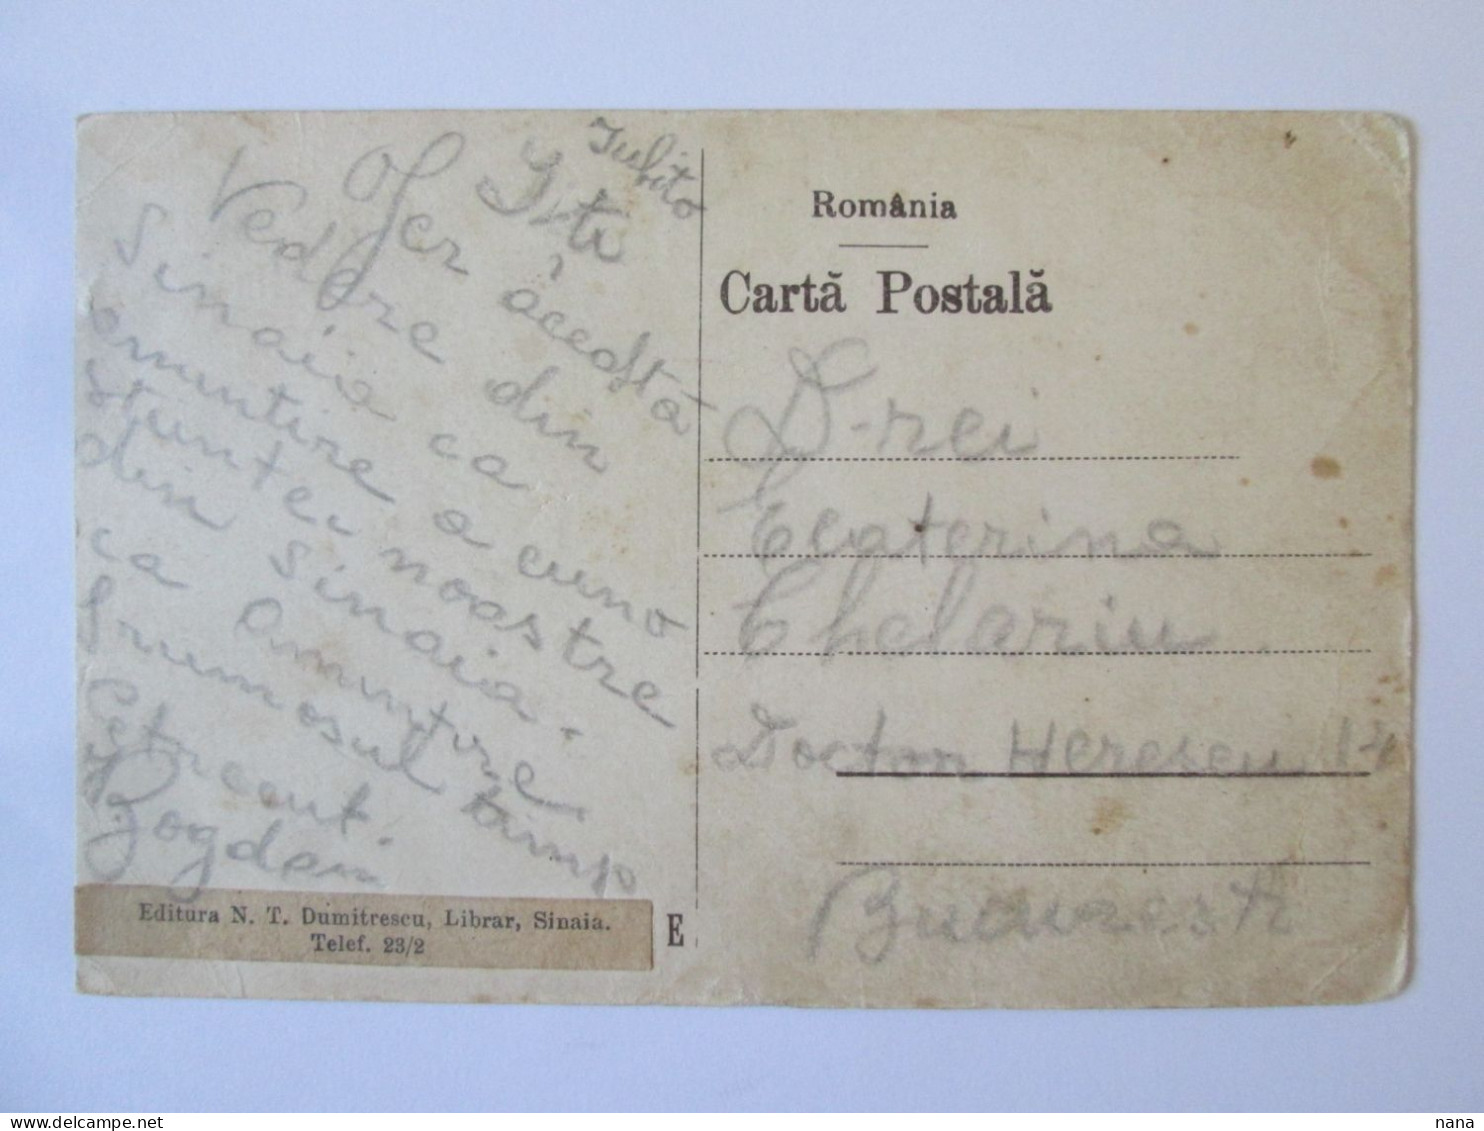 Iubito
Iti
Ofer această
Vedere din
Sinaia ca
amintire a cuno
stintei noastre
din Sinaia.
ca Amintire
frumosul timp
Petrecut.
Bogdan
Editura N. T. Dumitrescu, Librar, Sinaia.
Telef. 23/2
E
România
Cartă Postală
D-rei
Ecaterina
Chelariu.
Doctor Herescu 14
Bucuresti
nana